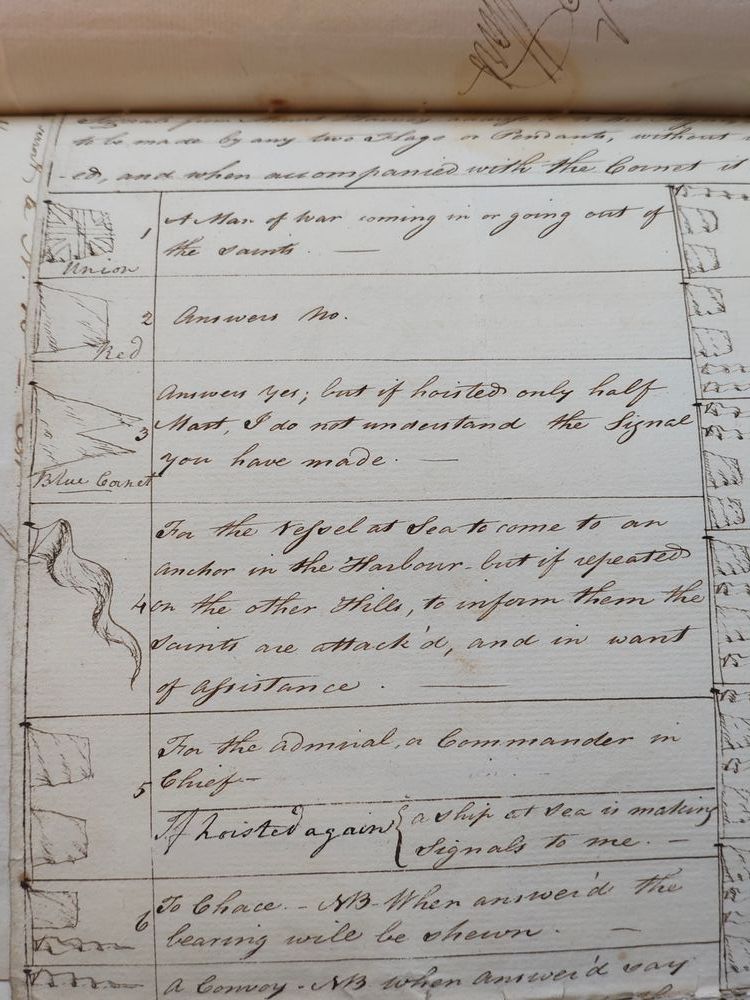 to be made by any two Flags or Pendants, without
-ed, and when accompanied with the Cornet is
Union
1 A Man of War coming in or going out of
the Saints. —
Red
2 Answers No.
Blue Cornet
3 Answers Yes; but if hoisted only half
Mast, I do not understand the Signal
you have made. —
4 For the Vessel at Sea to come to an
anchor in the Harbour - but if repeated
on the other Hills, to inform them the
Saints are attack'd, and in want
of assistance. —
5 For the admiral, or Commander in
Chief —
If hoisted again { a ship at Sea is making
Signals to me. —
6 To Chace. - NB - When answer'd the
bearing will be shewn. —
a Convoy - NB when answer'd say